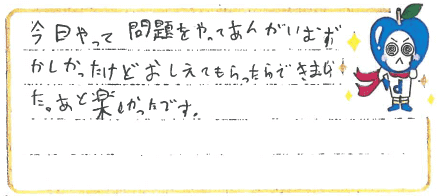 今日やって 問題をやってあんがいむず
かしかったけどおしえてもらったらできまし
た。あと楽しかったです。
d